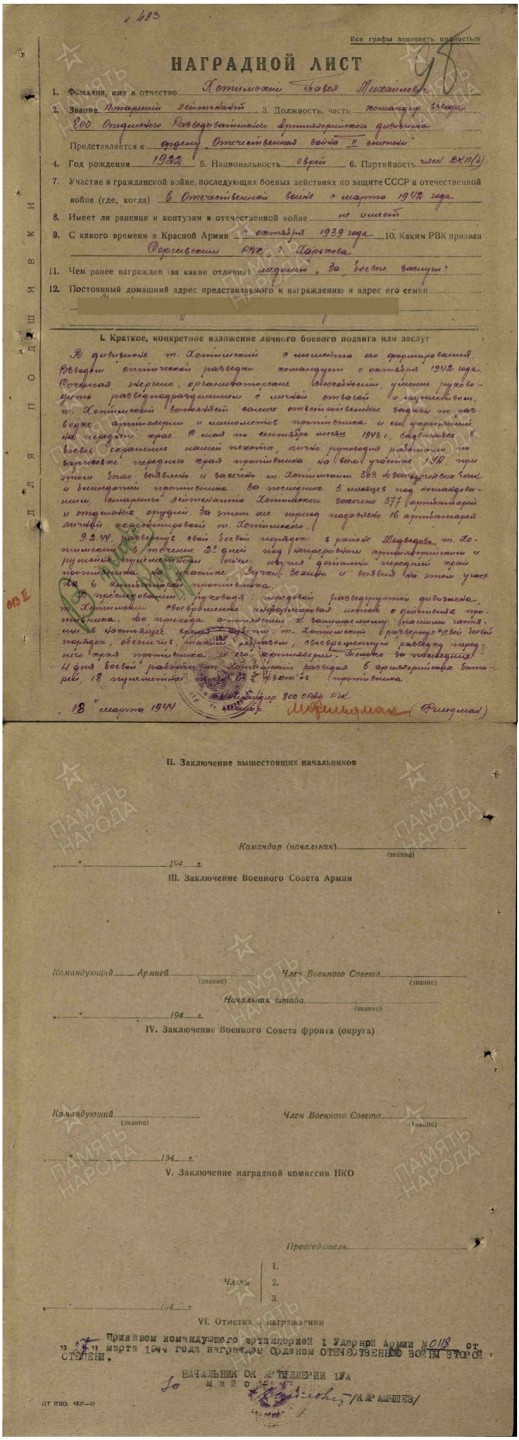 с 483
Все графы заполнять полностью
48
НАГРАДНОЙ ЛИСТ
1. Фамилия, имя и отчество Хотимский Павел Михайлович
2. Звание Старший лейтенант 3. Должность, часть командир взвода
800 Отдельного Разведывательного Артиллерийского дивизиона
Представляется к ордену „Отечественная война II степени"
4. Год рождения 1922 5. Национальность еврей 6. Партийность член ВКП(б)
7. Участие в гражданской войне, последующих боевых действиях по защите СССР и отечественной
войне (где, когда) в Отечественной войне с марта 1942 года
8. Имеет ли ранения и контузии в отечественной войне не имеет
9. С какого времени в Красной Армии с октября 1939 года 10. Каким РВК призван
РВК г. Харькова
11. Чем ранее награжден (за какие отличия) медалью „За боевые заслуги"
12. Постоянный домашний адрес представляемого к награждению и адрес его семьи
ДЛЯ ПОДШИВКИ
I. Краткое, конкретное изложение личного боевого подвига или заслуг
В дивизионе т. Хотимский с момента его формирования.
Взводом оптической разведки командует с октября 1942 года.
Сочетая энергию, организаторские способности, умение руково-
дить разведподразделением с личной отвагой и мужеством,
т. Хотимский выполняет самые ответственные задачи по раз-
ведке артиллерии и минометов противника и его укреплений
на переднем крае. С мая по сентябрь месяц 1943 г. находясь в
боевом охранении нашей пехоты, лично руководил работами по
зарисовке переднего края противника на всем участке при
этом было выявлено и засечено т. Хотимским 263 точек
и блиндажей противника. За последние 5 месяцев под командова-
нием старшего лейтенанта Хотимского засечено 377 артбатарей
и отдельных орудий. За этот же период подавлено 16 артбатарей
личной корректировкой т. Хотимского.
9.2.44 развернув свой боевой порядок в районе Медведево, т. Хо-
тимский в течении 2х дней под непрерывным артиллерийским и
ружейно-пулеметным огнем изучил детально передний край
противника на участке и выявил на этом участ-
ке 6 артбатарей противника.
В преследовании, руководя передовой разведгруппой дивизиона,
т. Хотимский своевременно информировал штаб о действиях про-
тивника.
В настоящее время т. Хотимский развернув свой боевой
порядок, обеспечив, таким образом, своевременную разведку перед-
него края противника и его артиллерии. Только за последние
4 дня боевой работы т. Хотимский разведал 5 артиллерийских бата-
рей, 18 пулеметных точек противника
ОВ II
Командир 800 ОРАД РГК
майор (Фельдман)
„18" марта 1944
II. Заключение вышестоящих начальников
Командир (начальник)
(звание)
„ " 194 г.
III. Заключение Военного Совета Армии
Командующий Армией Член Военного Совета
(звание) (звание)
Начальник штаба
(звание)
„ " 194 г.
IV. Заключение Военного Совета фронта (округа)
Командующий Член Военного Совета
(звание) (звание)
„ " 194 г.
V. Заключение наградной комиссии НКО
Председатель
Члены
1.
2.
3.
„ " 194 г.
VI. Отметка о награждении
Приказом командующего артиллерией 1 Ударной Армии №0118 от
"27" марта 1944 года награжден Орденом ОТЕЧЕСТВЕННОЙ ВОЙНЫ ВТОРОЙ
СТЕПЕНИ.
НАЧАЛЬНИК ОК АРТИЛЛЕРИИ 1УА
майор
/КАРАМЫШЕВ/
ПАМЯТЬ НАРОДА